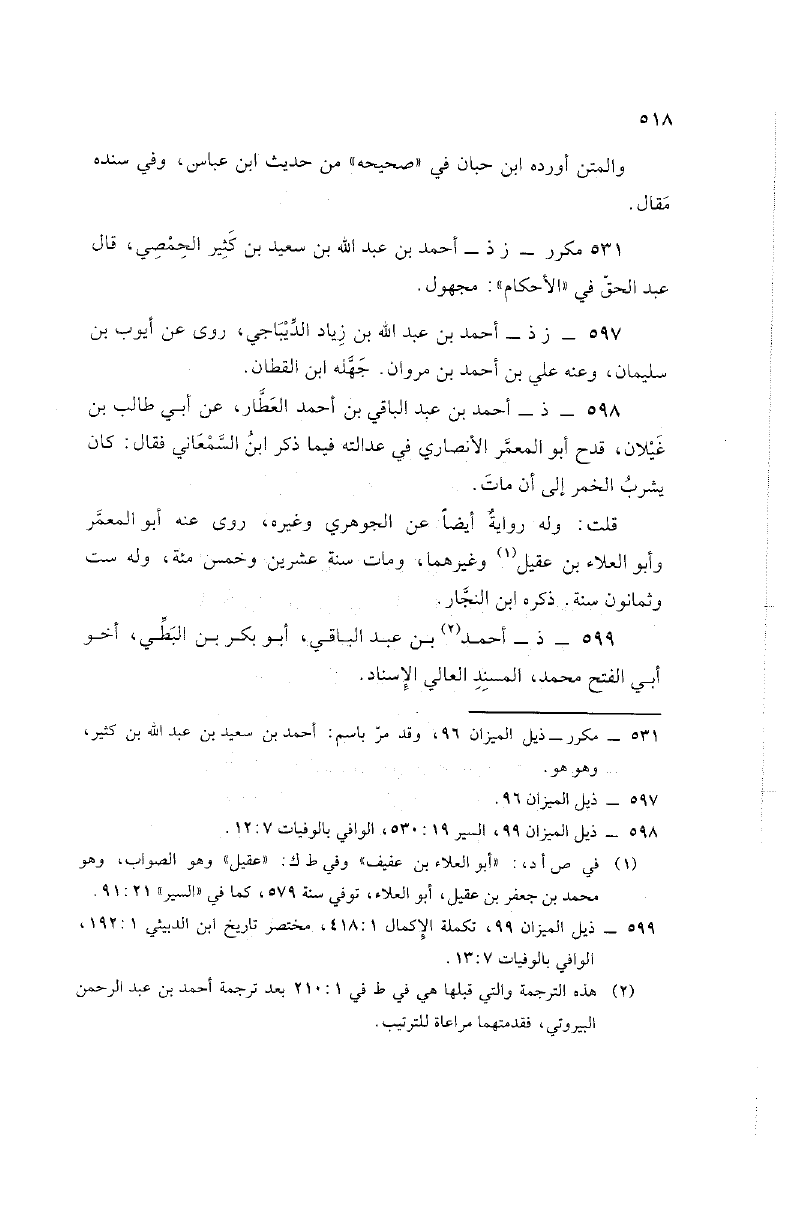 ٥١٨
والمتن أورده ابن حبان في «صحيحه» من حديث ابن عباس، وفي سنده
مَقال.
٥٣١ مكرر ــ ز ذ ــ أحمد بن عبد الله بن سعيد بن كَثِير الحِمْصِي، قال
عبد الحقّ في «الأحكام»: مجهول.
٥٩٧ ــ ز ذ ــ أحمد بن عبد الله بن زِياد الدِّيْبَاجي، روى عن أيوب بن
سليمان، وعنه علي بن أحمد بن مروان. جَهَّله ابن القطان.
٥٩٨ ــ ذ ــ أحمد بن عبد الباقي بن أحمد العَطَّار، عن أبي طالب بن
غَيْلان، قدح أبو المعمَّر الأنصاري في عدالته فيما ذكر ابنُ السَّمْعَاني فقال: كان
يشربُ الخمر إلى أن ماتَ.
قلت: وله روايةٌ أيضاً عن الجوهري وغيره، روى عنه أبو المعمَّر
وأبو العلاء بن عقيل(١) وغيرهما، ومات سنة عشرين وخمس مئة، وله ست
وثمانون سنة. ذكره ابن النجَّار.
٥٩٩ ــ ذ ــ أحمد(٢) بن عبد الباقي، أبو بكر بن البَطِّي، أخو
أبي الفتح محمد، المسنِدِ العالي الإِسناد.
٥٣١ ــ مكرر ــ ذيل الميزان ٩٦، وقد مرّ باسم: أحمد بن سعيد بن عبد الله بن كثير،
وهو هو.
٥٩٧ ــ ذيل الميزان ٩٦.
٥٩٨ ــ ذيل الميزان ٩٩، السير ١٩: ٥٣٠، الوافي بالوفيات ٧: ١٢.
(١) في ص أ د،: «أبو العلاء بن عفيف» وفي ط ك: «عقيل» وهو الصواب، وهو
محمد بن جعفر بن عقيل، أبو العلاء، توفي سنة ٥٧٩، كما في «السير» ٢١: ٩١.
٥٩٩ ــ ذيل الميزان ٩٩، تكملة الإِكمال ١: ٤١٨، مختصر تاريخ ابن الدبيثي ١: ١٩٢،
الوافي بالوفيات ٧: ١٣.
(٢) هذه الترجمة والتي قبلها هي في ط في ١: ٢١٠ بعد ترجمة أحمد بن عبد الرحمن
البيروتي، فقدمتهما مراعاة للترتيب.